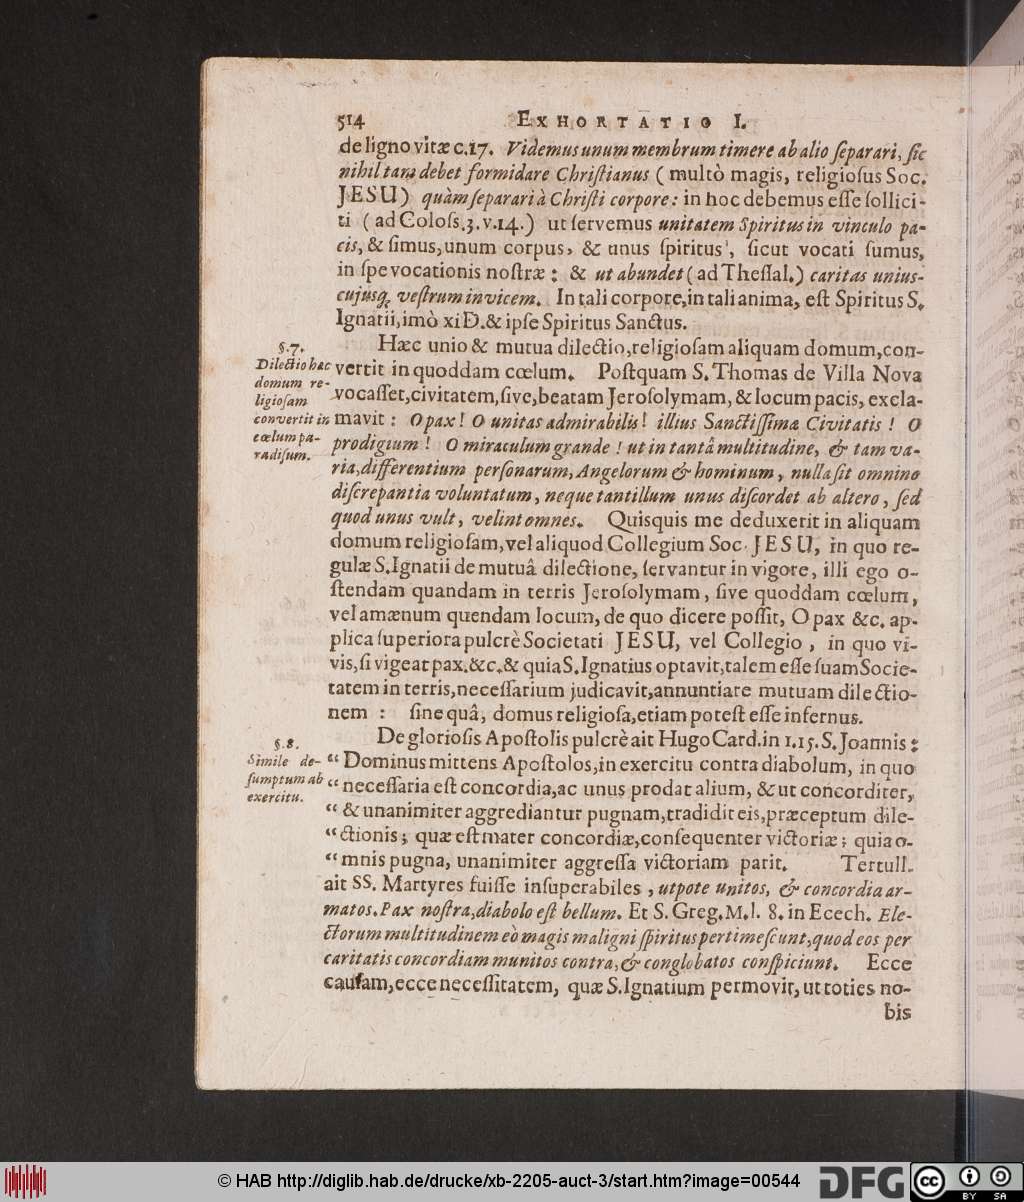 514 EXHORTATIO I.
de ligno vitæ c.17. Videmus unum membrum timere ab alio ſeparari, ſic
nihil tam debet formidare Chriſtianus ( multò magis, religioſus Soc.
JESU) quàm ſeparari à Chriſti corpore: in hoc debemus eſſe ſollici-
ti ( ad Coloſs.3.v.14.) ut ſervemus unitatem Spiritus in vinculo pa-
cis, & ſimus, unum corpus, & unus ſpiritus, ſicut vocati ſumus,
in ſpe vocationis noſtræ: & ut abundet ( ad Theſſal.) caritas unius-
cujusq; veſtrum invicem. In tali corpore, in tali anima, eſt Spiritus S.
Ignatii, imò xi D. & ipſe Spiritus Sanctus.
§.7.
Dilectio hæc
domum re-
ligioſam
convertit in
cœlum pa-
radiſum.
Hæc unio & mutua dilectio, religioſam aliquam domum, con-
vertit in quoddam cœlum. Poſtquam S. Thomas de Villa Nova
vocaſſet, civitatem, ſive, beatam Jeroſolymam, & locum pacis, excla-
mavit: O pax! O unitas admirabilis! illius Sanctiſſimæ Civitatis! O
prodigium! O miraculum grande! ut in tantâ multitudine, & tam va-
ria, differentium perſonarum, Angelorum & hominum, nulla ſit omnino
diſcrepantia voluntatum, neque tantillum unus diſcordet ab altero, ſed
quod unus vult, velint omnes. Quisquis me deduxerit in aliquam
domum religioſam, vel aliquod Collegium Soc. JESU, in quo re-
gulæ S. Ignatii de mutuâ dilectione, ſervantur in vigore, illi ego o-
ſtendam quandam in terris Jeroſolymam, ſive quoddam cœlum,
vel amænum quendam locum, de quo dicere poſſit, O pax &c. ap-
plica ſuperiora pulcrè Societati JESU, vel Collegio, in quo vi-
vis, ſi vigeat pax. &c. & quia S. Ignatius optavit, talem eſſe ſuam Socie-
tatem in terris, neceſſarium judicavit, annuntiare mutuam dilectio-
nem: ſine quâ, domus religioſa, etiam poteſt eſſe infernus.
§.8.
Simile de-
ſumptum ab
exercitu.
De glorioſis Apoſtolis pulcrè ait Hugo Card. in 1.15. S. Joannis:
“ Dominus mittens Apoſtolos, in exercitu contra diabolum, in quo
“ neceſſaria eſt concordia, ac unus prodat alium, & ut concorditer,
“ & unanimiter aggrediantur pugnam, tradidit eis, præceptum dile-
“ ctionis; quæ eſt mater concordiæ, conſequenter victoriæ; quia o-
“ mnis pugna, unanimiter aggreſſa victoriam parit. Tertull.
ait SS. Martyres fuiſſe inſuperabiles, utpote unitos, & concordia ar-
matos. Pax noſtra, diabolo eſt bellum. Et S. Greg. M. l. 8. in Ecech. Ele-
ctorum multitudinem eò magis maligni ſpiritus pertimeſcunt, quod eos per
caritatis concordiam munitos contra, & conglobatos conſpiciunt. Ecce
cauſam, ecce neceſſitatem, quæ S. Ignatium permovit, ut toties no-
bis
© HAB http://diglib.hab.de/drucke/xb-2205-auct-3/start.htm?image=00544
DFG
cc BY SA